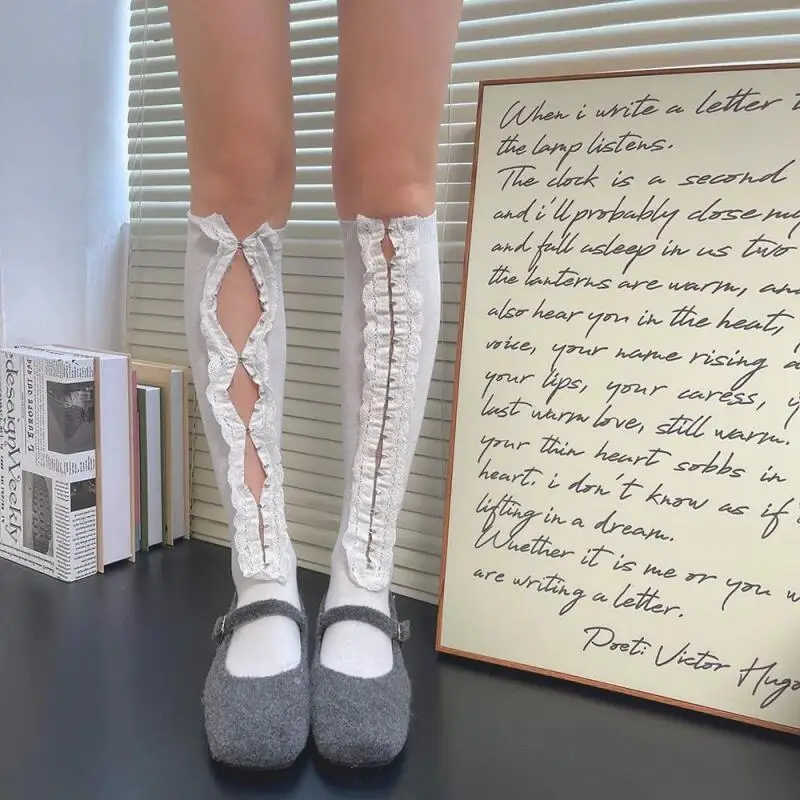 desaignWeekly
When i write a letter
the lamp listens.
The clock is a second
and i'll probably close my
and fall asleep in us two
the lanterns are warm, and
also hear you in the heat,
voice, your name rising
your lips, your caress,
last warm love, still warm.
your thin heart sobbs in
heart. i don't know as if
lifting in a dream.
Whether it is me or you
are writing a letter.
Poet: Victor Hugo